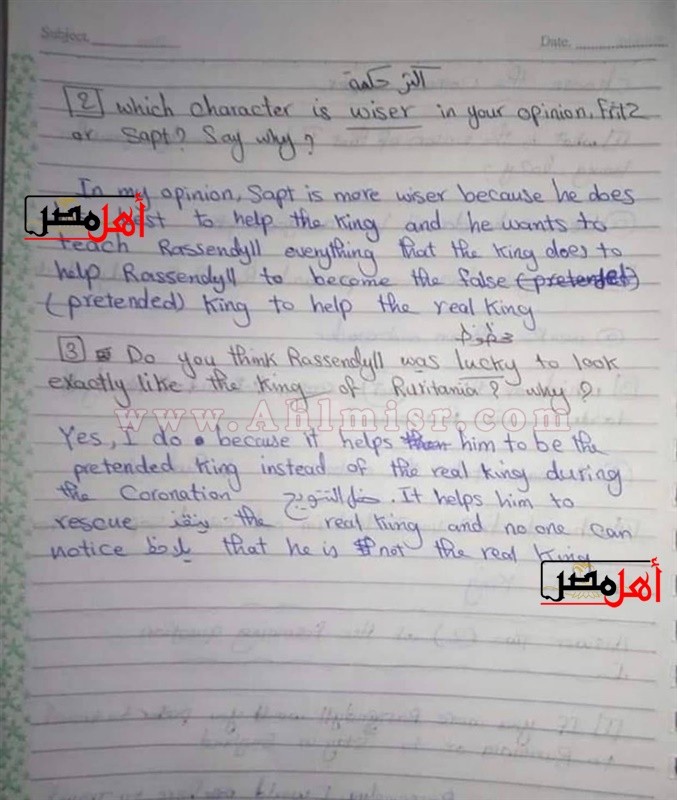 Subject
Date:
أكثر حكمة
[2] which character is wiser in your opinion, Fritz
or Sapt? Say why?
In my opinion, Sapt is more wiser because he does
أهل مصر
best to help the King and he wants to
teach Rassendyll everything that the King does to
help Rassendyll to become the false (pretended)
(pretended) King to help the real King
محظوظ
[3] Do you think Rassendyll was lucky to look
exactly like the King of Ruritania? why?
www.Ahlmisr.com
Yes, I do because it helps him to be the
pretended King instead of the real King during
the Coronation حفل التتويج. It helps him to
rescue ينقذ the real King and no one can
notice يلاحظ that he is not the real King
أهل مصر